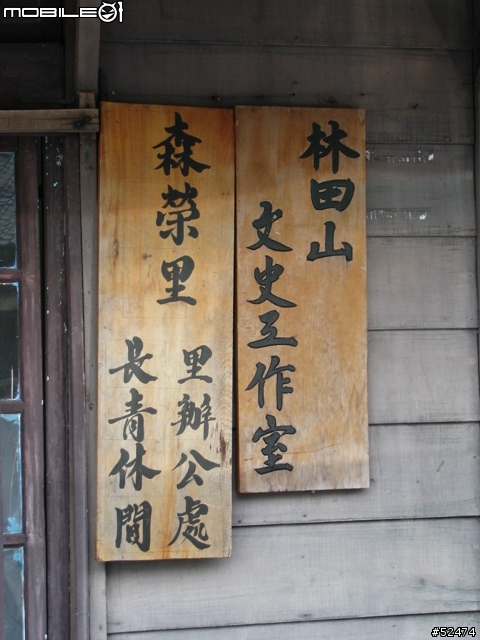 MOBILE01
林田山
文史工作室
森榮里
里辦公處
長青休閒
#52474